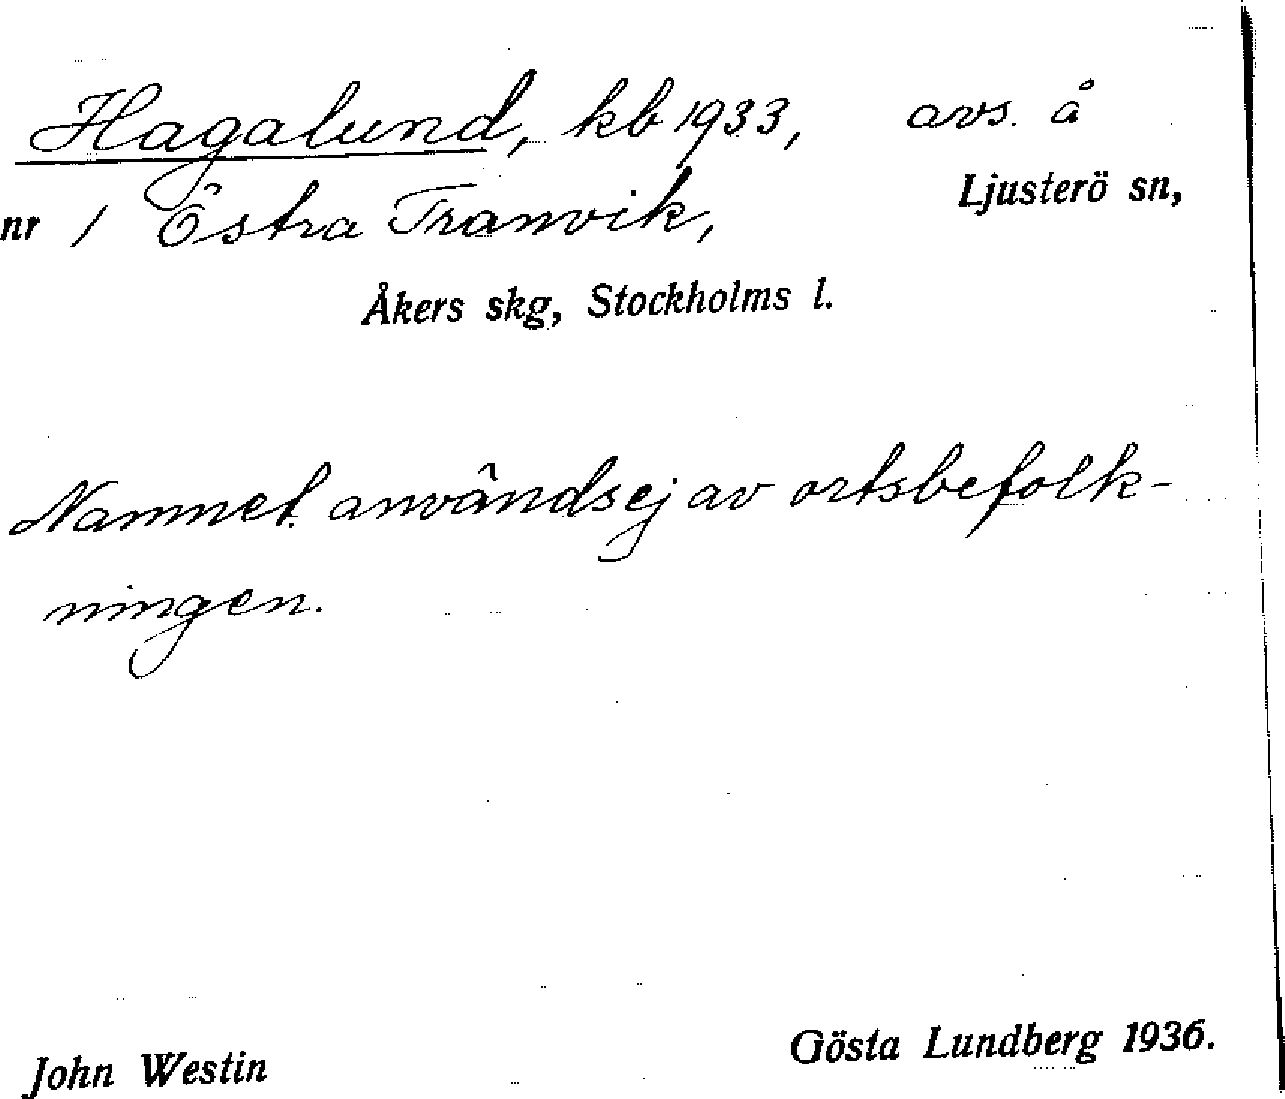 Hagalund, kb 1933, avs. å
nr 1 Östra Tranvik, Ljusterö sn,
Åkers skg, Stockholms l.
Namnet användsej av ortsbefolk-
ningen.
John Westin Gösta Lundberg 1936.